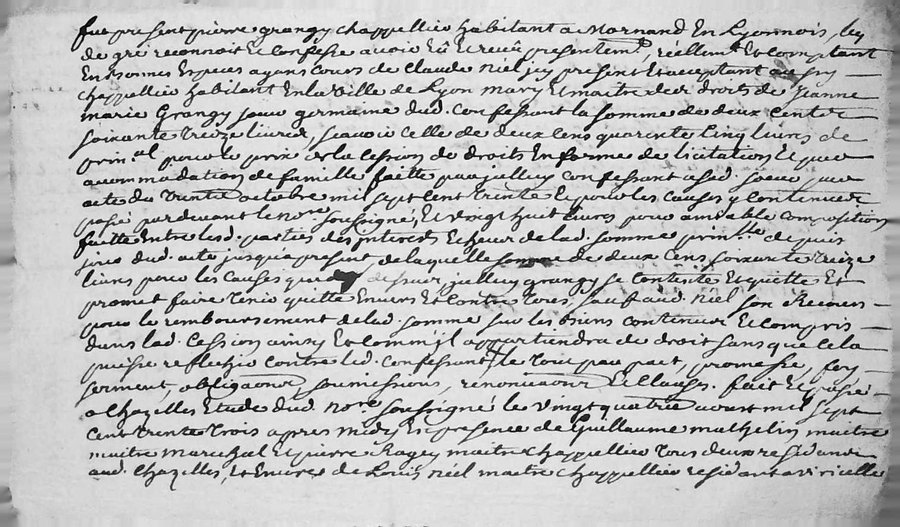 fut present pierre grangy chappellier habitant a Mornand En Lyonnois, leq
de gré reconnoit Et confesse avoir Eü Et receu presentemt, réellemt Et comptant
En bonnes Especes ayans Cours de Claude Niel jcy present Et acceptant aussy
chappellier habitant En la Ville de Lyon mary Et maitre des droits de Jeanne
marie Grangy soeur germaine dud. Confessant la somme de deux cents
soixante treize livres, scavoir celle de deux Cens quarente Cinq livres de
prin.al pour le prix de la Cession de droits En forme de licitation Et par
accommodation de famille faitte par jcelluy Confessant a sad. soeur par
acte du trente octobre mil sept cent trente Et pour les Causes y Contenues
passé pardevant le nore soussigné, Et vingt huit livres pour amiable Composition
faitte Entre lesd. parties des jnterets Echeus de lad. somme prin.lle depuis
led. acte jusqu'a present, de laquelle somme de deux Cens soixante treize
livres pour les Causes que dessus, jcelluy grangy se Contente Et quitte Et
promet faire tenir quitte Envers Et Contre tous, sauf aud. Niel son Recours
pour le remboursement de lad. somme sur les biens Contenus Et Compris
dans lad. Cession ainsy Et Comm'il appartiendra de droit sans que Cela
puisse reflechir Contre led. Confessant, le tout par pact, promesse, foy
serment, obligaons, soumissions, renonciaons Et Clauses. fait Et passé
a Chazelles Etude dud. nore soussigné le Vingt quatre aoust mil sept
Cent trente trois apres midy En presence de Guillaume mathelin maitre
maitre marechal Et pierre Ragey maitre chappellier tous deux residans
aud. Chazelles, Et Encores de Louis Niel maitre chappellier residant a Viricelle